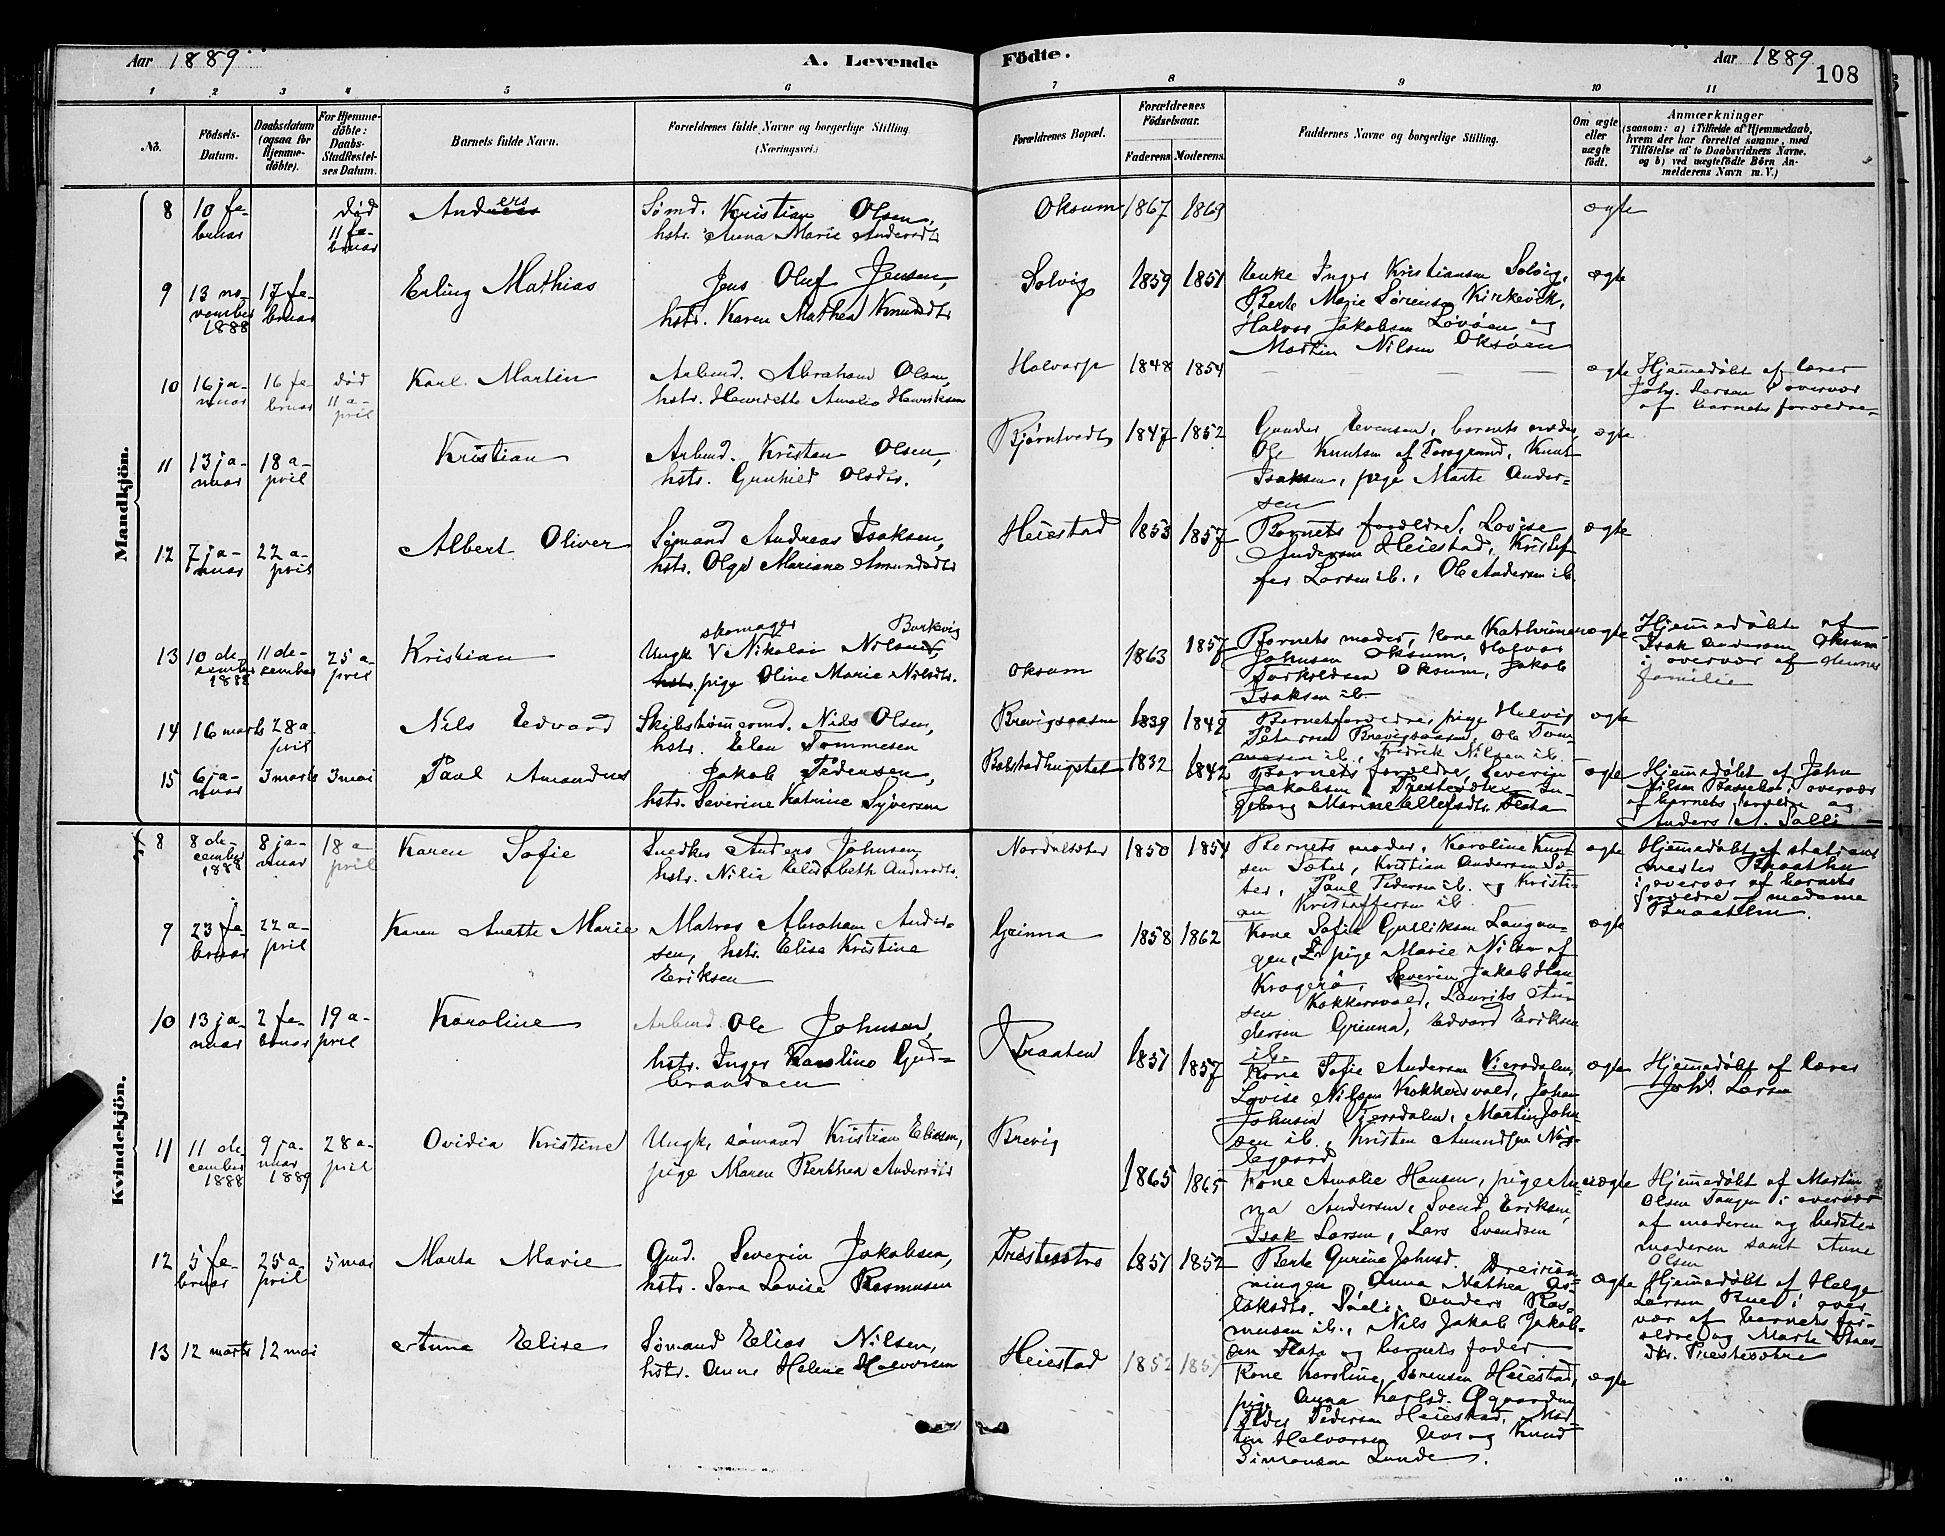 Aar 1889
A. Levende
Födte.
Aar 1889
108
1 2 3 4 5 6 7 8 9 10 11
No.
Födsels-
Datum.
Daabsdatum
(ogsaa for
Hjemme-
döbte).
For Hjemme-
döbte:
Daabs-
Stadfæstel-
ses Datum.
Barnets fulde Navn.
Forældrenes fulde Navne og borgerlige Stilling
(Næringsvei.)
Forældrenes Bopæl.
Forældrenes
Födselsaar.
Faderens Moderens
Faddernes Navne og borgerlige Stilling.
Om ægte
eller
uægte
födt.
Anmærkninger
(saasom: a) i Tilfælde af Hjemmedaab,
hvem der har forrettet samme, med
Tilföielse af to Daabsvidners Navne.
og b) ved uægtefödte Börn An-
melderens Navn m. V.)
Mandkjön.
8
10 fe-
bruar
död
11 fe-
bruar
Anders
Sømd. Kristian Olsen,
hstr. Anna Marie Andersdt
Oksum
1867
1869
ægte
9
13 no-
vember
1888
17 fe-
bruar
Erling Mathias
Jens Oluf Jensen,
hstr. Karen Mathea Knudsdt
Solvig
1859
1851
Enke Inger Kristiansen Solvig,
Berte Marie Sørensen Kirkevik,
Halvor Jakobsen Løvøen og
Martin Nilsen Oksøen
ægte
10
16 ja-
nuar
16 fe
bruar
död
11 a-
pril
Karl Martin
Arbmd. Abrahand Olsen,
hstr. Henriette Amalie Henriksen
Halvarp
1848
1854
ægte
Hjemmedøbt af lærer
Johs. Larsen i overvær
af barnets forældre
11
13 ja-
nuar
18 a-
pril
Kristian
Arbmd. Kristen Olsen,
hstr. Gunhild Olsdt.
Bjørntvedt
1847
1852
Gunder Evensen, barnets moder,
Ole Knutsen af Porsgrund, Knut
Isaksen, pige Marte Ander-
sen
ægte
12
7 ja-
nuar
22 a-
pril
Albert Oliver
Sømand Andreas Isaksen,
hstr. Olga Mariane Amundsdt
Heiestad
1853
1857
Barnets forældre, Lovise
Andersen Heiestad, Kristof
fer Larsen ib., Ole Andersen ib.
ægte
13
10 de-
cember
1888
11 de-
cember
25 a-
pril
Kristian
skomager Barkevig
Ungk V Nikolai Nilsen,
hstr. pige Oline Marie Nilsdt.
Oksum
1863
1857
Barnets moder, kone Kathrine
Johnsen Oksum, Halvor
Torkildsen Oksum, Jakob
Isaksen ib.
uægte
Hjemmedøbt af
Isak Andersen Oksum
i overvær af dennes
familie
14
16 marts
28 a-
pril
Nils Edvard
Skibstømmermd. Nils Olsen,
hstr. Elen Tommesen
Brevigsaasen
1839
1849
Barnets forældre, pige Helvig
Petersen Brevigsaasen, Ole Tom-
mesen ib., Fredrik Nilsen ib.
ægte
15
6 ja-
nuar
3 marts
3 mai
Paul Amandus
Jakob Pedersen,
hstr. Severine Katrine Syversen
1832
1842
Barnets forældre, Severin
Jakobsen Prestesætre, In-
geborg Marine Ellefsdt. Flata
ægte
Hjemmedøbt af John
Nilsen Basseboe i overvær
af barnets forældre og
Anders A. Salli
Kvindekjön.
8
8 de-
cember
1888
8 ja-
nuar
18 a-
pril
Karen Sofie
Snedker Anders Johnsen
hstr. Nilia Elisabeth Andersdt.
Nordalsæter
1850
1854
Barnets moder, Karoline Knut
sen Sæter, Kristian Andersen Sæ-
ter, Paul Pedersen ib. og Kristi-
an Kristoffersen ib.
ægte
Hjemmedøbt af stations
mester Braathen
i overvær af barnets
forældre og madame
Braathen.
9
23 fe
bruar
22 a-
pril
Karen Anette Marie
Matros Abraham Ander-
sen, hstr. Elise Kristine
Eriksen
Grinna
1858
1862
Kone Sofie Gulliksen Langan-
gen, pige Marie Nilsen af
Kragerø, Severin Jakob Han-
sen Kokkersvold, Laurits An-
dersen Grinna, Edvard Eriksen
ib.
ægte
10
13 ja-
nuar
2 fe-
bruar
19 a-
pril
Karoline
Arbmd. Ole Johnsen,
hstr. Inger Karoline Gud-
brandsen
Braaten
1851
1857
Kone Sofie Andersen Viersdalen,
Lovise Nilsen Kokkersvold, Johan
Johnsen Viersdalen, Martin John-
sen ib., Kristen Amundsen Nor-
legaard
ægte
Hjemmedøbt af lærer
Johs. Larsen
11
11 de-
cember
1888
9 ja-
nuar
1889
28 a-
pril
Ovidia Kristine
Ungk. sømand Kristian Eliassen,
pige Maren Berthea Andersdt
Brevig
1865
1865
Kone Amalie Hansen, pige An-
na Andersen, Svend Eriksen,
Isak Larsen, Lars Svendsen
uægte
Hjemmedøbt af Martin
Olsen Tangen i overvær
af moderen og bedste-
moderen samt Anne
Olsen
12
5 fe-
bruar
25 a-
pril
5 mai
Marta Marie
Gmd. Severin Jakobsen,
hstr. Sara Lovise Rasmussen
Prestesætre
1851
1852
Berte Gurine Johnsd.
ningen Anna Mathea As-
laksdt. Salli, Anders Ras-
mussen ib., Nils Jakob Jakob-
sen Flata og barnets fader.
ægte
Hjemmedøbt af Helge
Larsen Buer i over
vær af barnets for-
ældre og Marte
dtr. Prestesætre
13
12 marts
12 mai
Anna Elise
Sømand Elias Nilsen,
hstr. Anne Helene Halvorsen
Heiestad
1852
1857
Kone Karoline Sørensen Heiestad,
pige Anna Karlsd.
Peder Pedersen Heiestad, Mar-
tin Halvorsen og Knud
Simonsen Lunde.
ægte